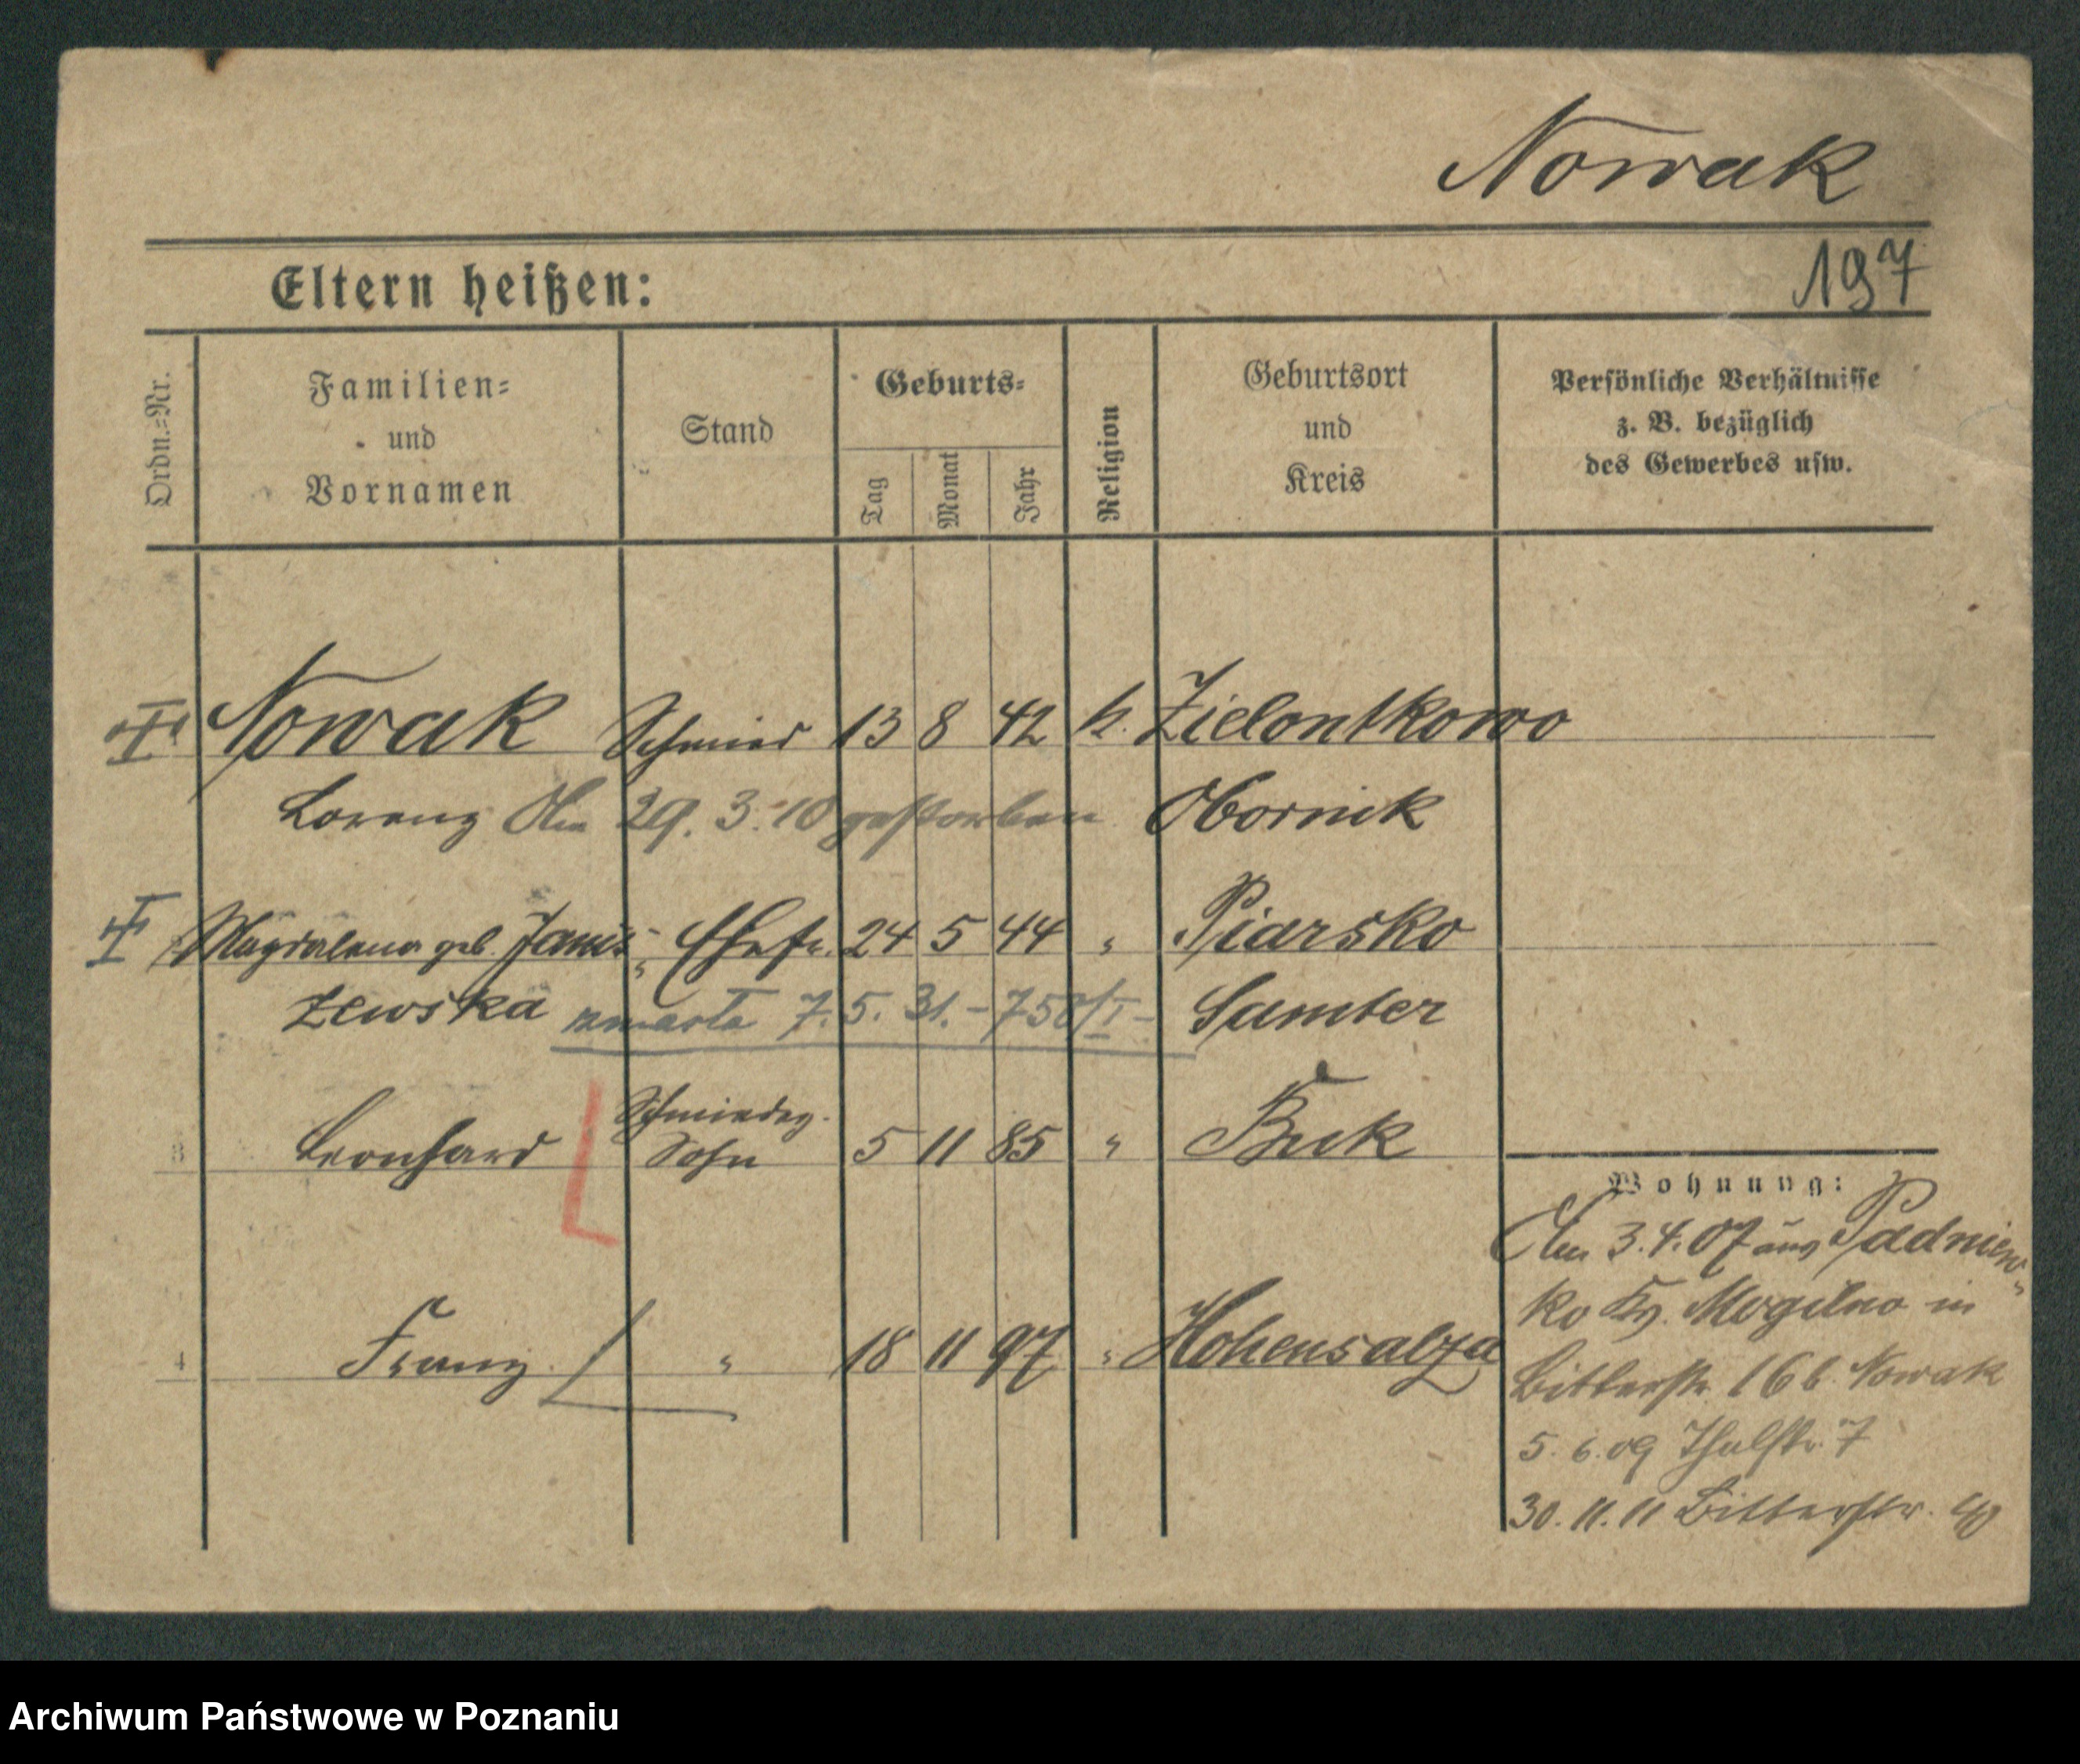 Nowak
Eltern heißen:
197
Ordn.=Nr.
Familien=
und
Vornamen
Stand
Geburts=
Tag
Monat
Jahr
Religion
Geburtsort
und
Kreis
Persönliche Verhältnisse
z. B. bezüglich
des Gewerbes usw.
Nowak Schmied 13 8 42 k. Zielontkowo
Lorenz Am 29. 3. 10 gestorben Obornik
Magdalena geb. Janis- Ehefr. 24 5 44 " Piarsko
zewska zmarła 7. 5. 31. - 750/I - Samter
3 Leonhard Schmiedes. Sohn 5 11 85 " Buk
4 Franz " 18 11 97 " Hohensalza
Wohnung:
Am 3.4.07 aus Padniew-
ko Kr. Mogilno in
Bitterstr. 16 b. Nowak
5. 6. 09 Thalstr. 7
30. 11. 11 Bitterstr.
Archiwum Państwowe w Poznaniu